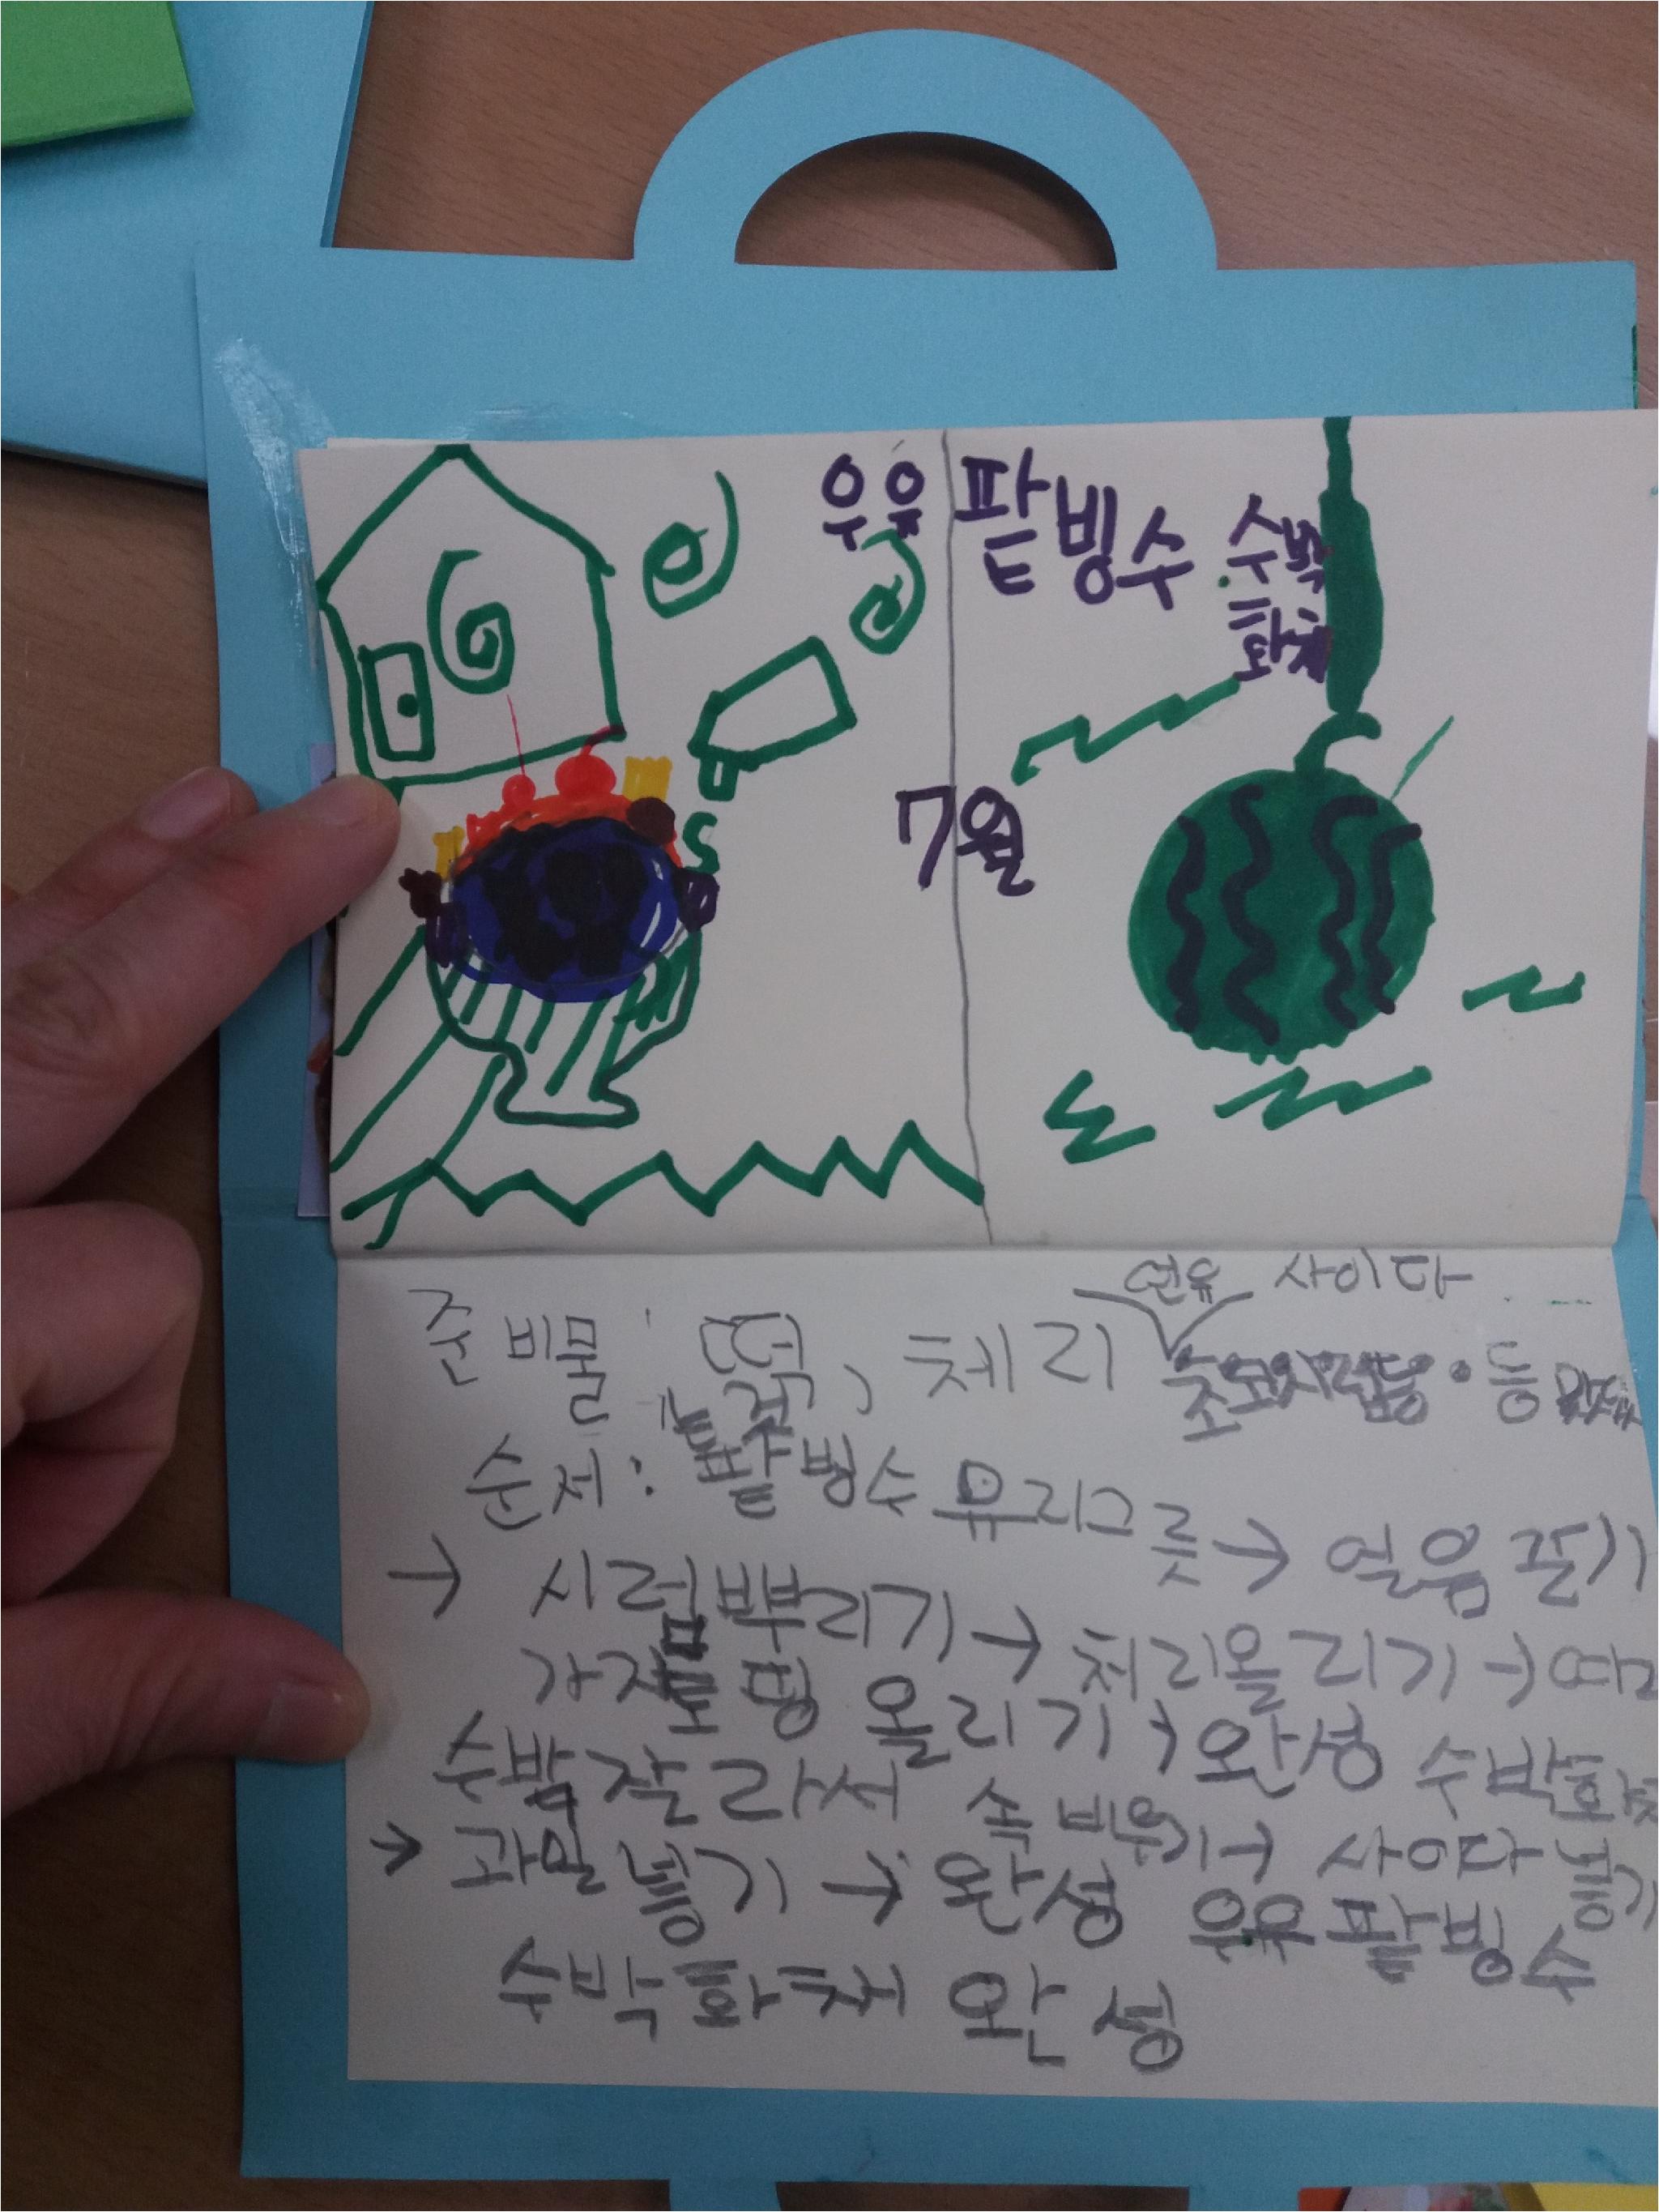 우유 팥빙수 수박
화채
7월
연유 사이다
준비물: 떡, 체리 초코시럽 등
순서: 팥빙수 유리그릇 → 얼음 갈기
→ 시럽뿌리기 → 체리올리기 →
가지 토핑 올리기 → 완성 수박화채
수박 잘라서 속 비우기 → 사이다 넣기
→ 과일 넣기 → 완성 우유 팥빙수
수박화채 완성